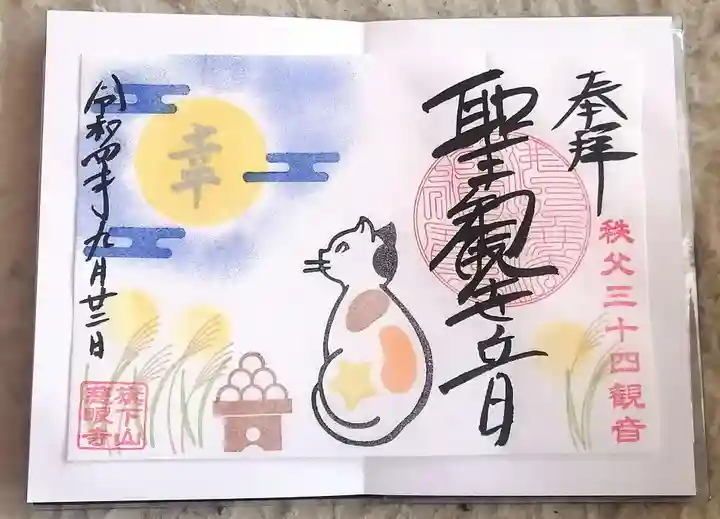 奉拝
秩父三十四観音
聖観世音
幸
令和四年九月廿二日
萩下山